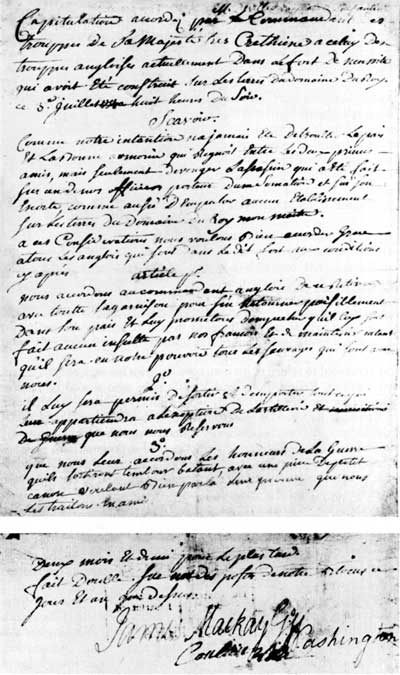 Capitulation accordée par le Commandant des
trouppes de Sa Majesté tres Crethiene a celuy des
trouppes angloises actuellement Dans le fort de necessité
qui avoit Eté construit Sur Les terres du domaine du Roy
ce 3e Juillet 1754 huit heures du Soir.
Scavoir.
Comme notre intention na jamais Eté de troubler La paix
Et La bonne armonie qui Regnoit Entre Les deux princes
amis, mais Seulement de venger Lassasin qui a Eté fait
Sur un de nos officiers porteur dune Somation et Sur Son
Escorte comme aussi D'Empecher aucun Etablissement
Sur Les terres du Domaine du Roy mon maitre.
a ces Considerations nous voulons bien accorder Grace
a tous Les anglois qui Sont dans Le dit fort aux conditions
cy apres
article 1er
nous accordons au commandant anglois de se Retirer
avec toutte la garnison pour Sen Retourner paisiblement
Dans Son pais et Luy promettons D'empecher quil Luy Soit
fait aucun insulte par nos francois Et de maintenir autant
quil Sera en notre pouvoir tous Les Sauvages qui Sont avec
nous.
2o
il Luy Sera permis de Sortir Et D'emporter tout ce qui
Leur appartiendra a Lexeption de Lartillerie Et munitions
de Guerre que nous nous Reservons
3o
que nous Leur accordons Les honneurs de La Guerre
quils Sortiront tembour batant avec une piece De petit
canon voulant bien par la Leur prouver que nous
Les traitons En ami
Deux mois Et demi pour Le plus tard
fait Double Sur un des postes de notre Blocus ce
Jour Et an que dessus.
James Mackay
Go Washington
Coulon